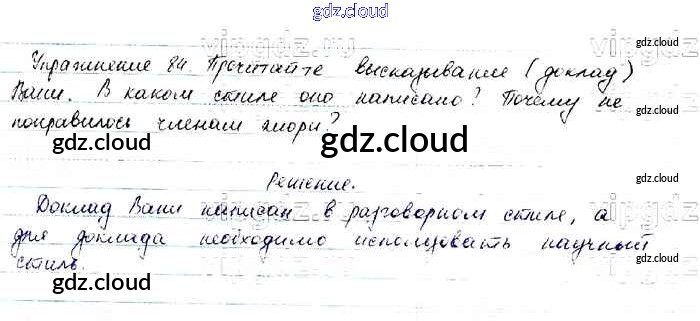 gdz.cloud
Упражнение 84. Прочитайте высказывание (доклад)
Вани. В каком стиле оно написано? Почему не
понравилось членам жюри?
Решение.
Доклад Вани написан в разговорном стиле, а
для доклада необходимо использовать научный
стиль.
vipgdz.ru
gdz.cloud
gdz.cloud
gdz.cloud
gdz.cloud
gdz.cloud
gdz.cloud
gdz.cloud
gdz.cloud
gdz.cloud
gdz.cloud